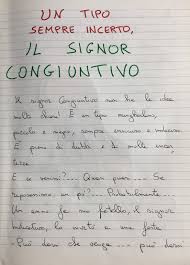 UN TIPO
SEMPRE INCERTO,
IL SIGNOR
CONGIUNTIVO
Il signor Congiuntivo non ha le idee
molto chiare! È un tipo mingherlino,
piccolo e magro, sempre insicuro e indeciso.
È pieno di dubbi e di molte incer
tezze.
E se venissi?... Quasi quasi... Se
riposassimo un po'?... Probabilmente...
Un anno fa suo fratello, il signor
Indicativo, lo invitò a una festa
- Può darsi che venga... può darsi